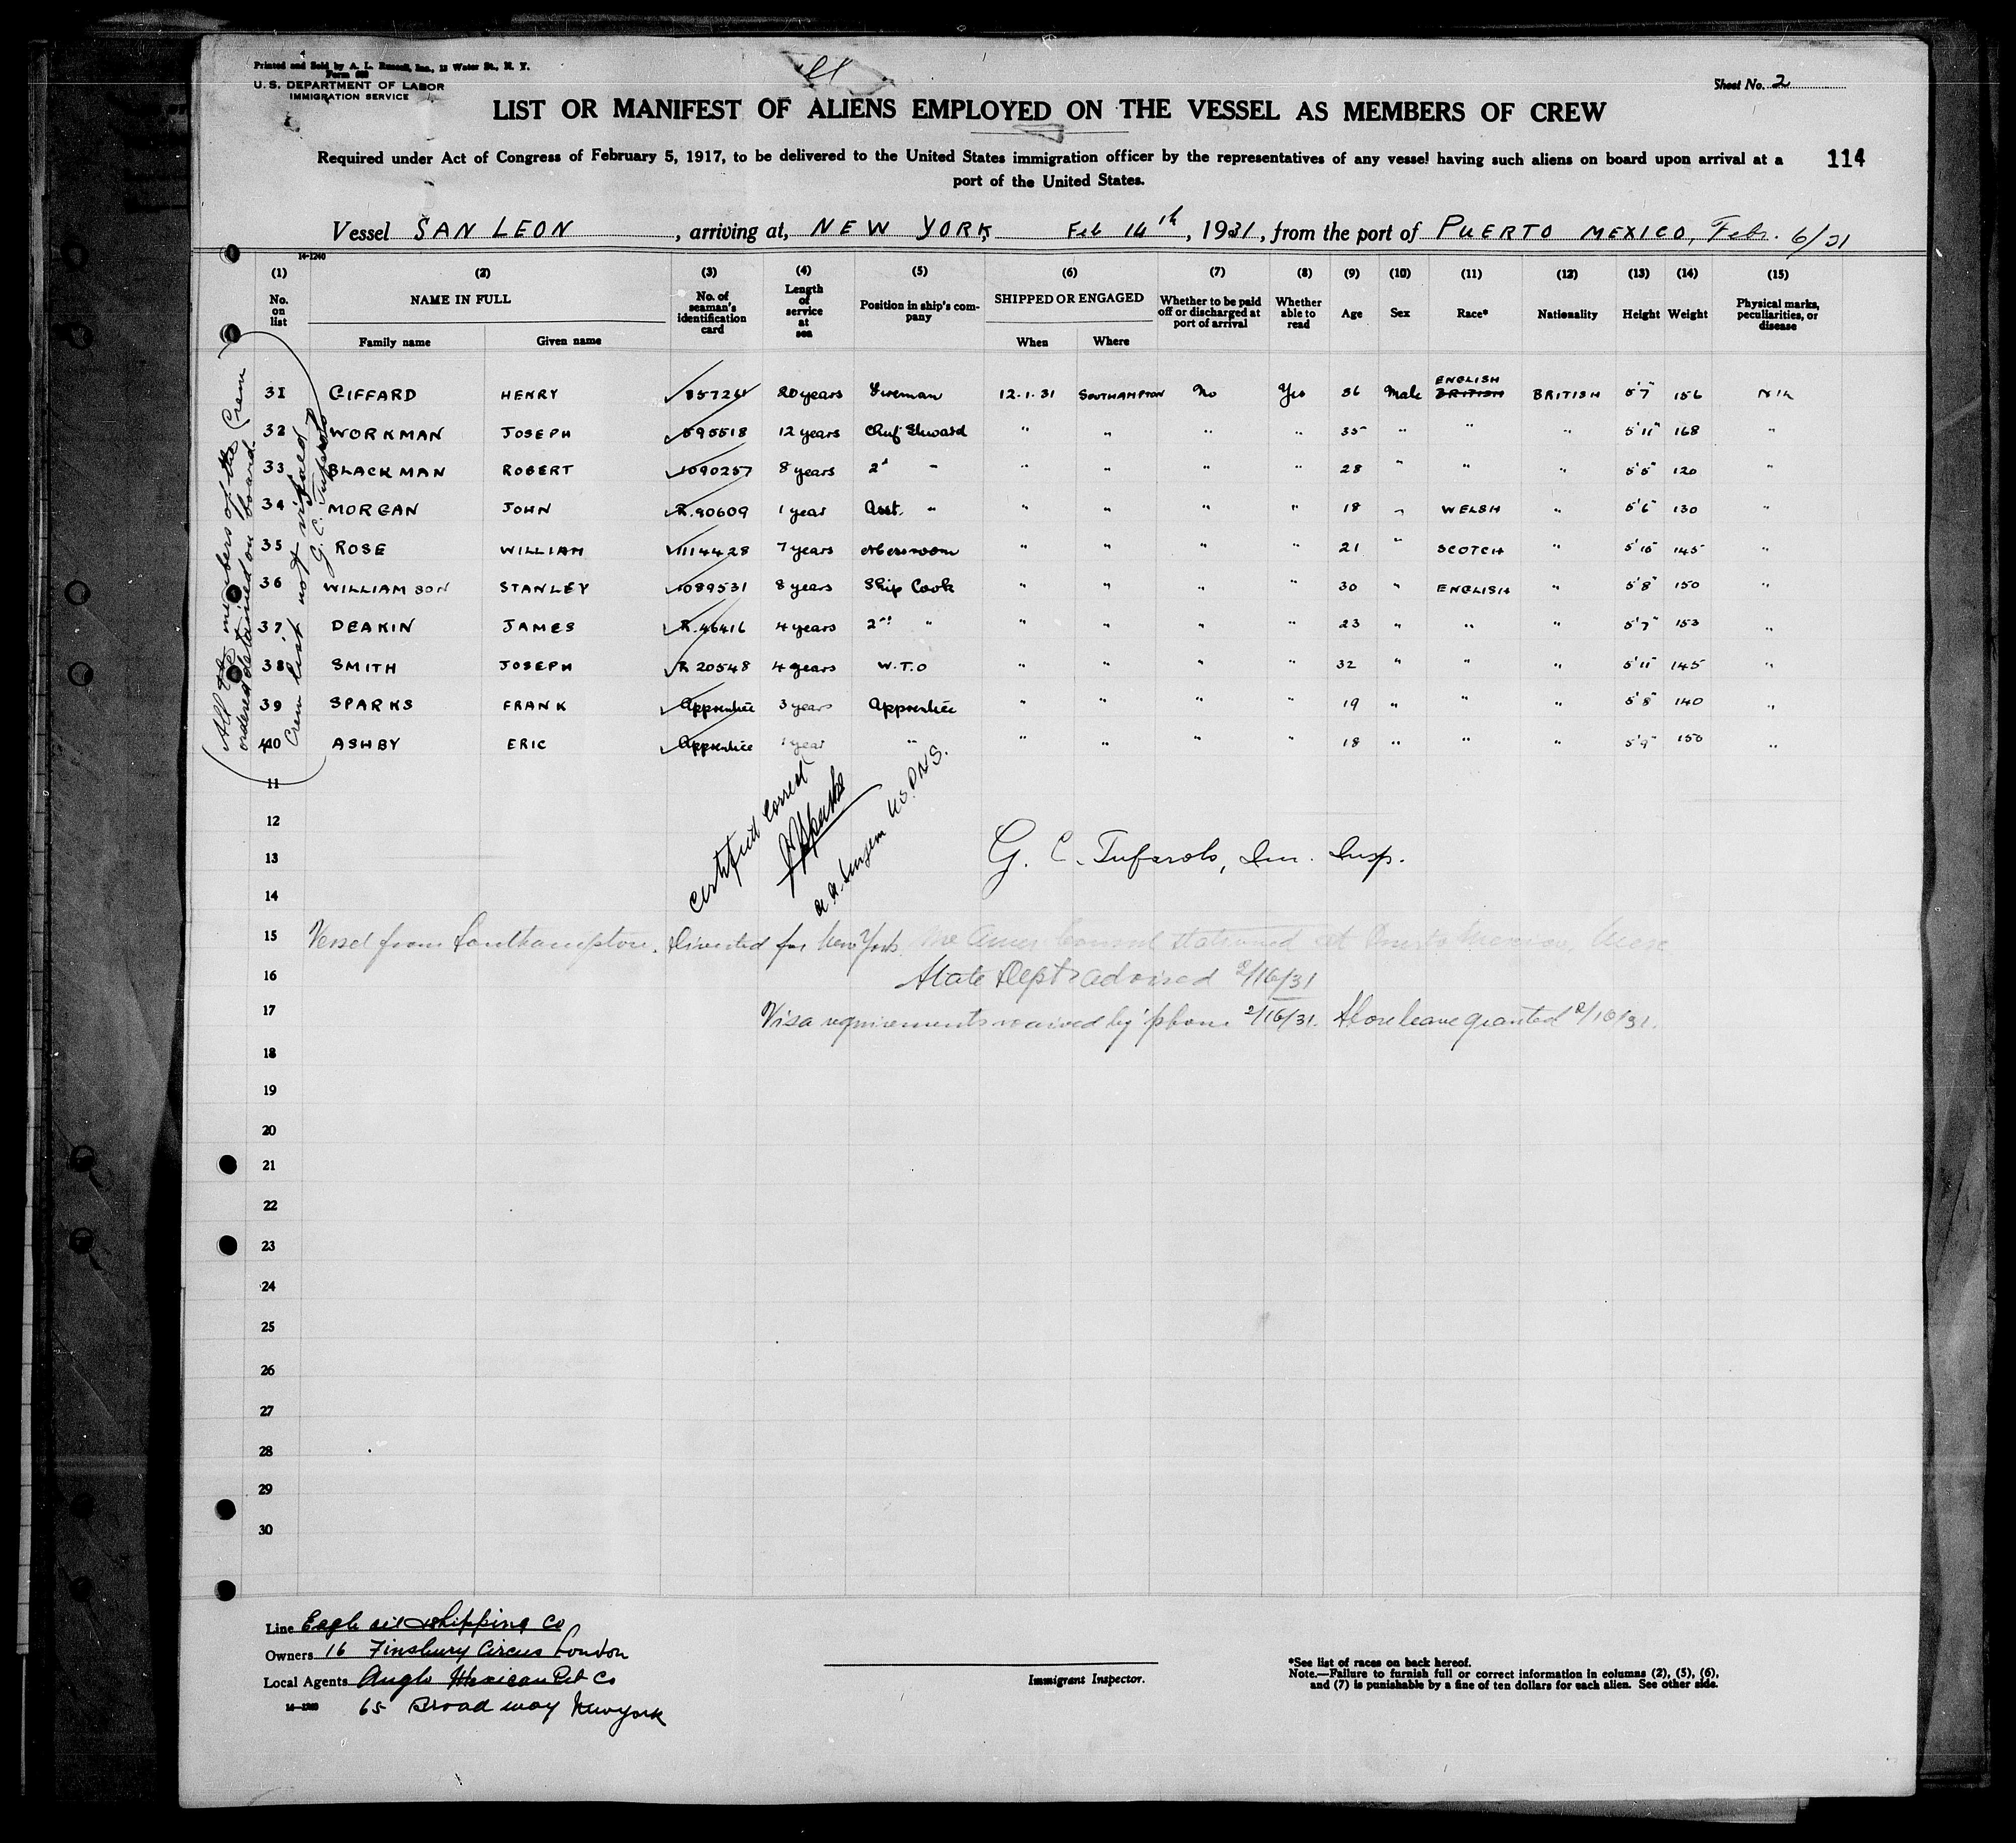 Printed and Sold by A. L. Russell, Inc., 12 Water St., N. Y.
U. S. DEPARTMENT OF LABOR
IMMIGRATION SERVICE
Sheet No. 2
LIST OR MANIFEST OF ALIENS EMPLOYED ON THE VESSEL AS MEMBERS OF CREW
Required under Act of Congress of February 5, 1917, to be delivered to the United States immigration officer by the representatives of any vessel having such aliens on board upon arrival at a
port of the United States.
114
Vessel SAN LEON, arriving at, NEW YORK, Feb 14th, 1931, from the port of PUERTO MEXICO, Febr. 6/31
14-1240
(1) (2) (3) (4) (5) (6) (7) (8) (9) (10) (11) (12) (13) (14) (15)
No. on list NAME IN FULL Family name Given name No. of seaman's identification card Length of service at sea Position in ship's company SHIPPED OR ENGAGED When Where Whether to be paid off or discharged at port of arrival Whether able to read Age Sex Race* Nationality Height Weight Physical marks, peculiarities, or disease
31 GIFFARD HENRY 20 years Fireman 12.1.31 SOUTHAMPTON No Yes 36 Male BRITISH ENGLISH BRITISH 5'7" 156 Nil
32 WORKMAN JOSEPH 595518 12 years Chief Steward " " " " 35 " " " 5'11" 168 "
33 BLACKMAN ROBERT 1090257 8 years 2d " " " " " 28 " " " 5'5" 120 "
34 MORGAN JOHN R.90609 1 year Asst. " " " " " 18 " WELSH " 5'6" 130 "
35 ROSE WILLIAM 1114428 7 years Messroom " " " " 21 " SCOTCH " 5'10" 145 "
36 WILLIAMSON STANLEY 1089531 8 years Ship Cook " " " " 30 " ENGLISH " 5'8" 150 "
37 DEAKIN JAMES R.46416 4 years 2nd " " " " " 23 " " " 5'7" 153 "
38 SMITH JOSEPH R 20548 4 years W.T.O " " " " 32 " " " 5'11" 145 "
39 SPARKS FRANK Apprentice 3 years Apprentice " " " " 19 " " " 5'8" 140 "
40 ASHBY ERIC Apprentice 1 year " " " " " 18 " " " 5'9" 150 "
All the members of the Crew
ordered detained on board.
Crew list not visaed
G. C. Tufarolo
11
12
Certified Correct
13
G. C. Tufarolo, Im. Insp.
14
15 Vessel from Southampton. Diverted for New York. No Amer Consul stationed at Puerto Mexico, Mex
16 State Dept advised 2/16/31
17 Visa requirements waived by 'phone 2/16/31. Shore leave granted 2/16/31.
18
19
20
21
22
23
24
25
26
27
28
29
30
Line Eagle oil Shipping Co
Owners 16 Finsbury Circus London
Local Agents Anglo Mexican Pet Co
65 Broadway New York
Immigrant Inspector.
*See list of races on back hereof.
Note.—Failure to furnish full or correct information in columns (2), (5), (6),
and (7) is punishable by a fine of ten dollars for each alien. See other side.